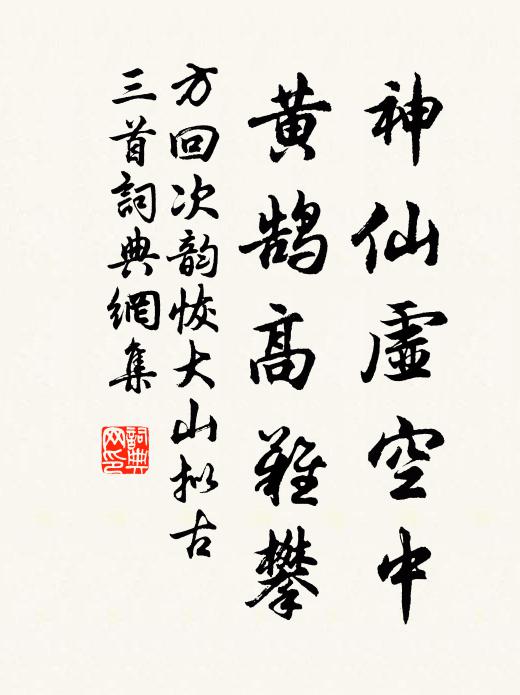 神仙虛空中
黃鵠高難攀
方回次韵恢大山拟古
三首詞典網集
詞典網印